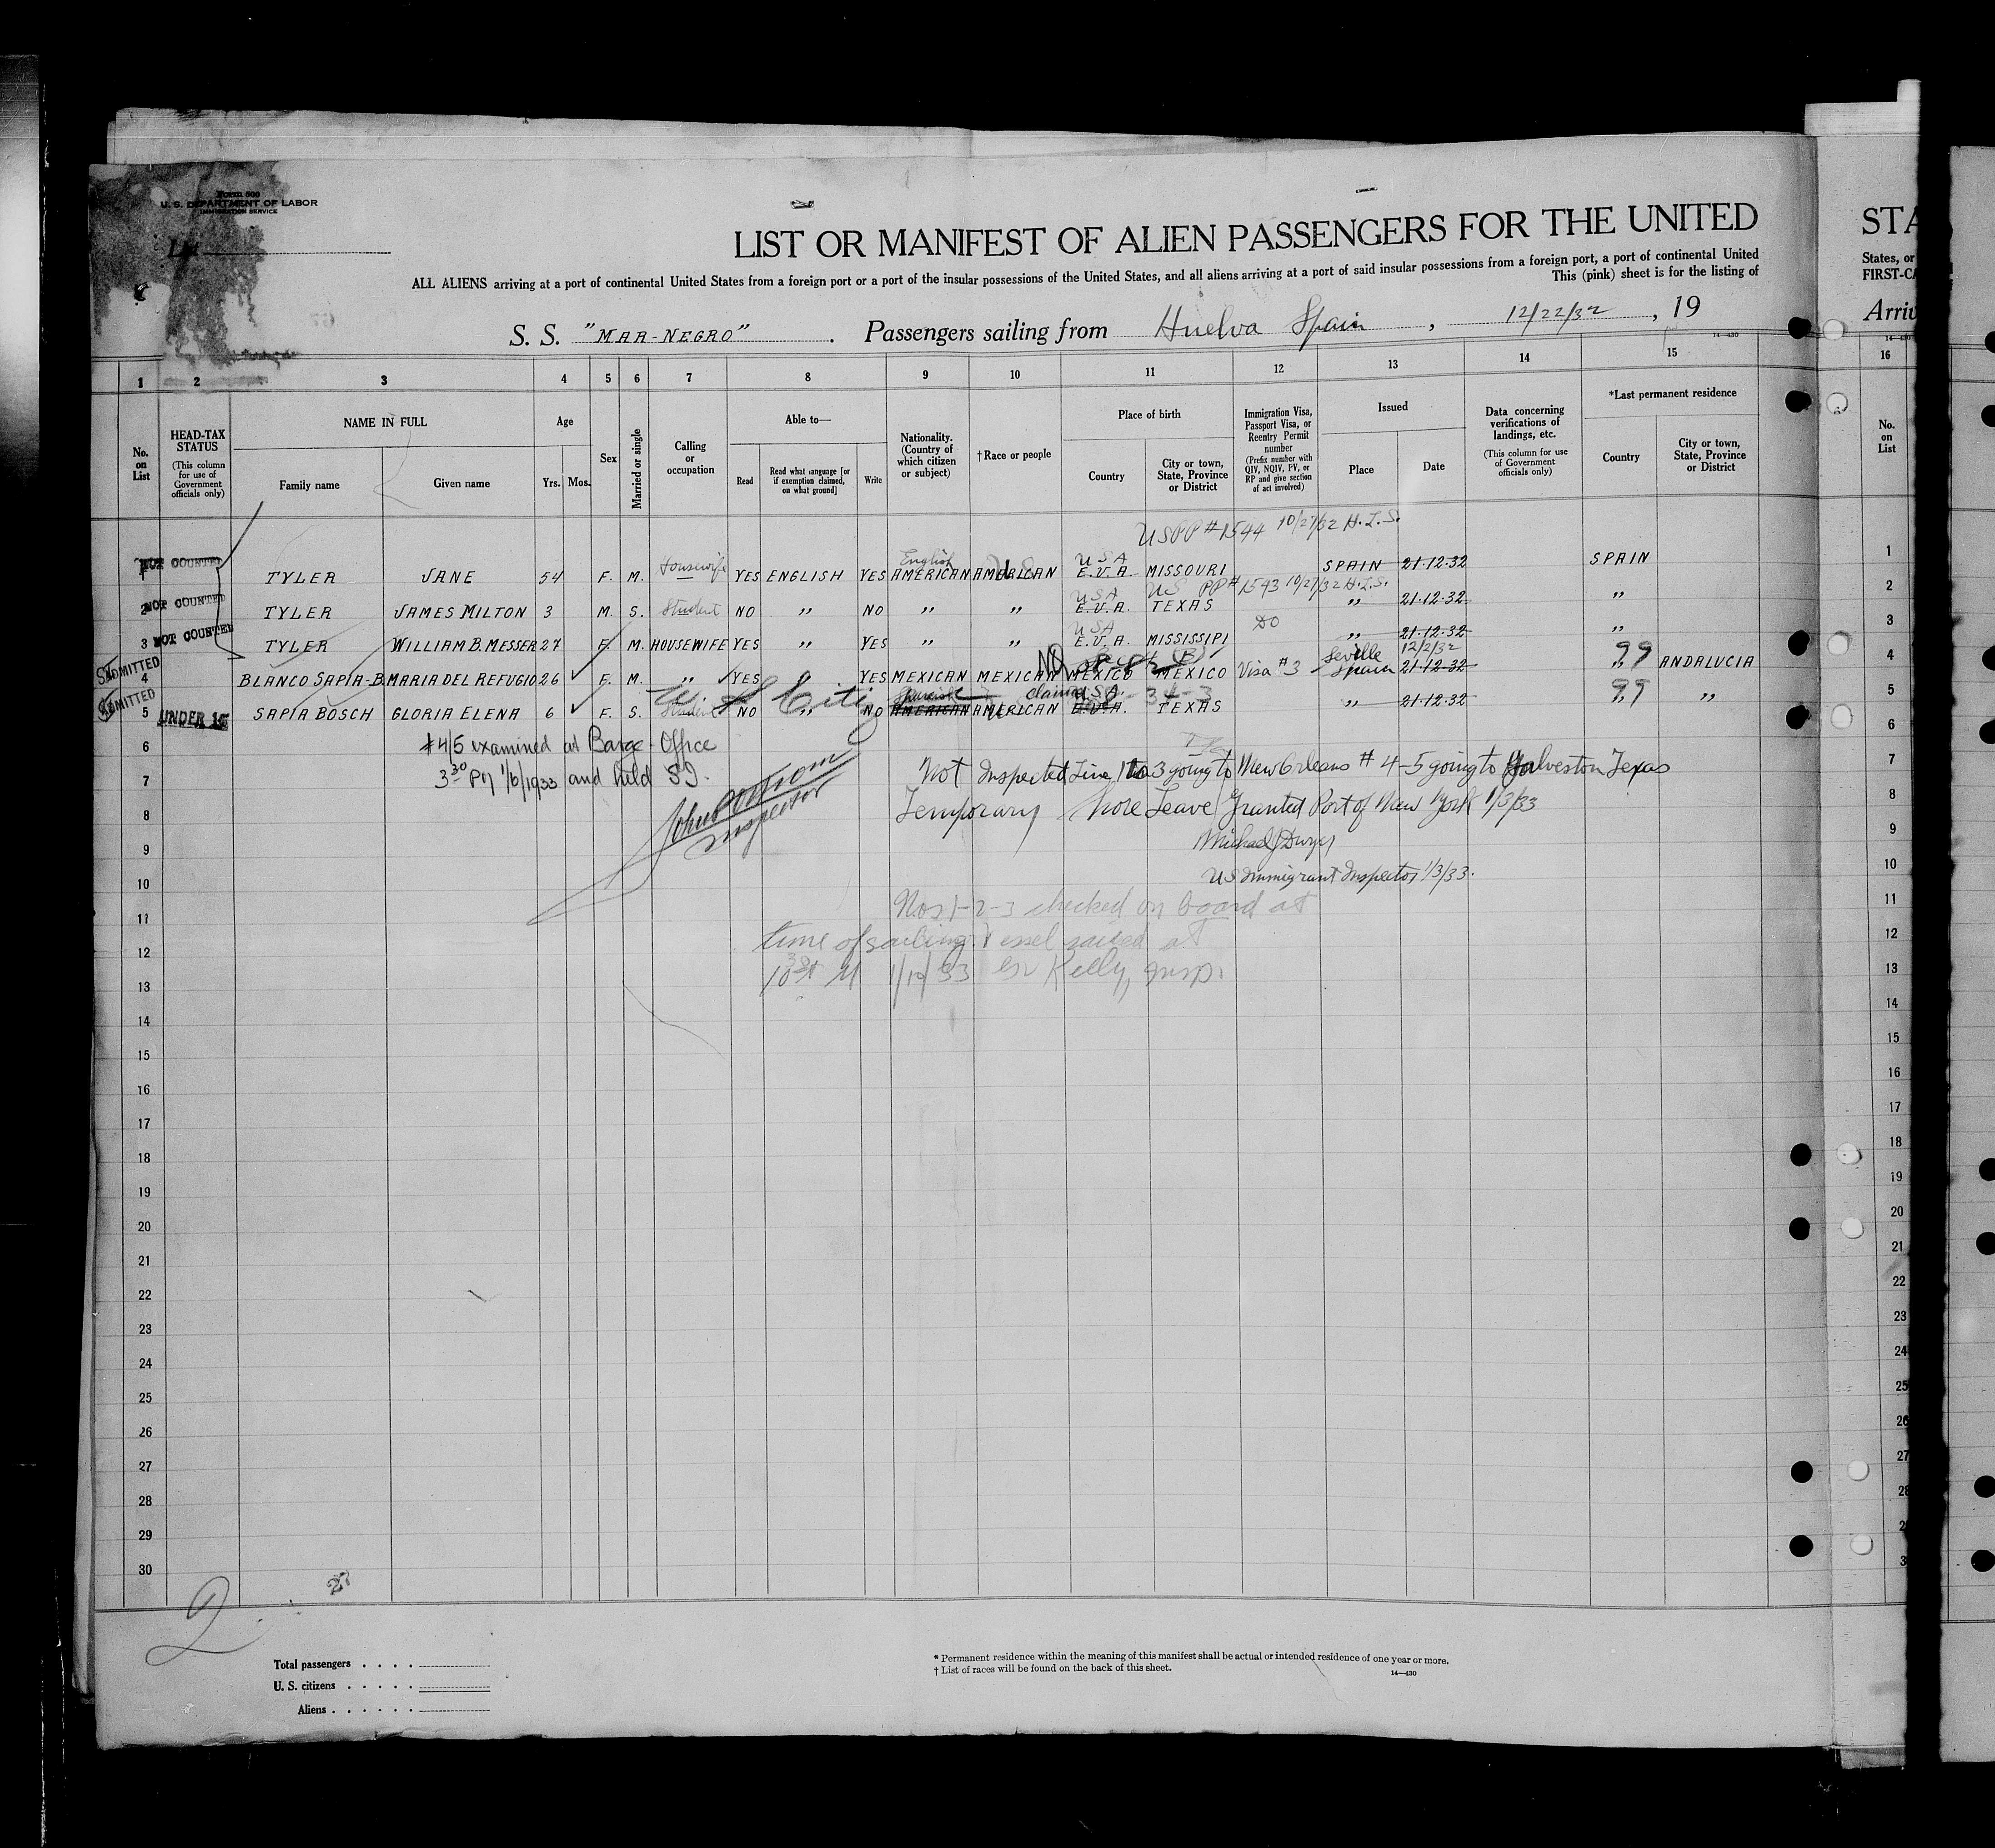 Form 500
U. S. DEPARTMENT OF LABOR
IMMIGRATION SERVICE
List
LIST OR MANIFEST OF ALIEN PASSENGERS FOR THE UNITED
STA
ALL ALIENS arriving at a port of continental United States from a foreign port or a port of the insular possessions of the United States, and all aliens arriving at a port of said insular possessions from a foreign port, a port of continental United
States, or
This (pink) sheet is for the listing of
FIRST-CA
S. S. "MAR-NEGRO". Passengers sailing from Huelva Spain, 12/22/32, 19
Arriv
14-430
1 2 3 4 5 6 7 8 9 10 11 12 13 14 15
16
No. on List
HEAD-TAX STATUS
(This column for use of Government officials only)
NAME IN FULL
Family name
Given name
Age
Yrs. Mos.
Sex
Married or single
Calling or occupation
Able to—
Read
Read what language [or if exemption claimed, on what ground]
Write
Nationality. (Country of which citizen or subject)
†Race or people
Place of birth
Country
City or town, State, Province or District
Immigration Visa, Passport Visa, or Reentry Permit number
(Prefix number with QIV, NQIV, PV, or RP and give section of act involved)
Issued
Place
Date
Data concerning verifications of landings, etc.
(This column for use of Government officials only)
*Last permanent residence
Country
City or town, State, Province or District
No. on List
USPP #1544 10/27/32 H.I.S.
Housewife English U.S. USA
1 NOT COUNTED TYLER JANE 54 F. M. YES ENGLISH YES AMERICAN AMERICAN E.V.A. MISSOURI SPAIN 21-12-32 SPAIN 1
USA US PP# 1543 10/27/32 H.I.S.
2 NOT COUNTED TYLER JAMES MILTON 3 M. S. Student NO " NO " " E.V.A. TEXAS " 21-12-32 " 2
USA DO
3 NOT COUNTED TYLER WILLIAM B. MESSER 27 F. M. HOUSEWIFE YES " YES " " E.V.A. MISSISSIPI " 21-12-32 " 3
Seville 12/2/32
ADMITTED 4 BLANCO SAPIA-B. MARIA DEL REFUGIO 26 F. M. " YES YES MEXICAN MEXICAN MEXICO MEXICO Visa #3 Spain 21-12-32 " ANDALUCIA 4
U.S. Citiz claims USA
ADMITTED 5 UNDER 16 SAPIA BOSCH GLORIA ELENA 6 F. S. Student NO " NO AMERICAN AMERICAN E.V.A. TEXAS " 21-12-32 " " 5
6 #4/5 examined at Barge Office 6
7 3 30 PM 1/6/1933 and held SI. Not Inspected Line 1 to 3 going to New Orleans #4-5 going to Galveston Texas 7
Inspector
8 Temporary Shore Leave Granted Port of New York 1/3/33 8
9 Michael J Dwyer 9
10 US Immigrant Inspector 1/3/33. 10
11 Nos 1-2-3 checked on board at 11
12 time of sailing. Vessel sailed at 12
13 Kelly, Insp. 13
14 14
15 15
16 16
17 17
18 18
19 19
20 20
21 21
22 22
23 23
24 24
25 25
26 26
27 27
28 28
29
30
2
Total passengers . . . .
U. S. citizens . . . . .
Aliens . . . . . .
* Permanent residence within the meaning of this manifest shall be actual or intended residence of one year or more.
† List of races will be found on the back of this sheet.
14-430